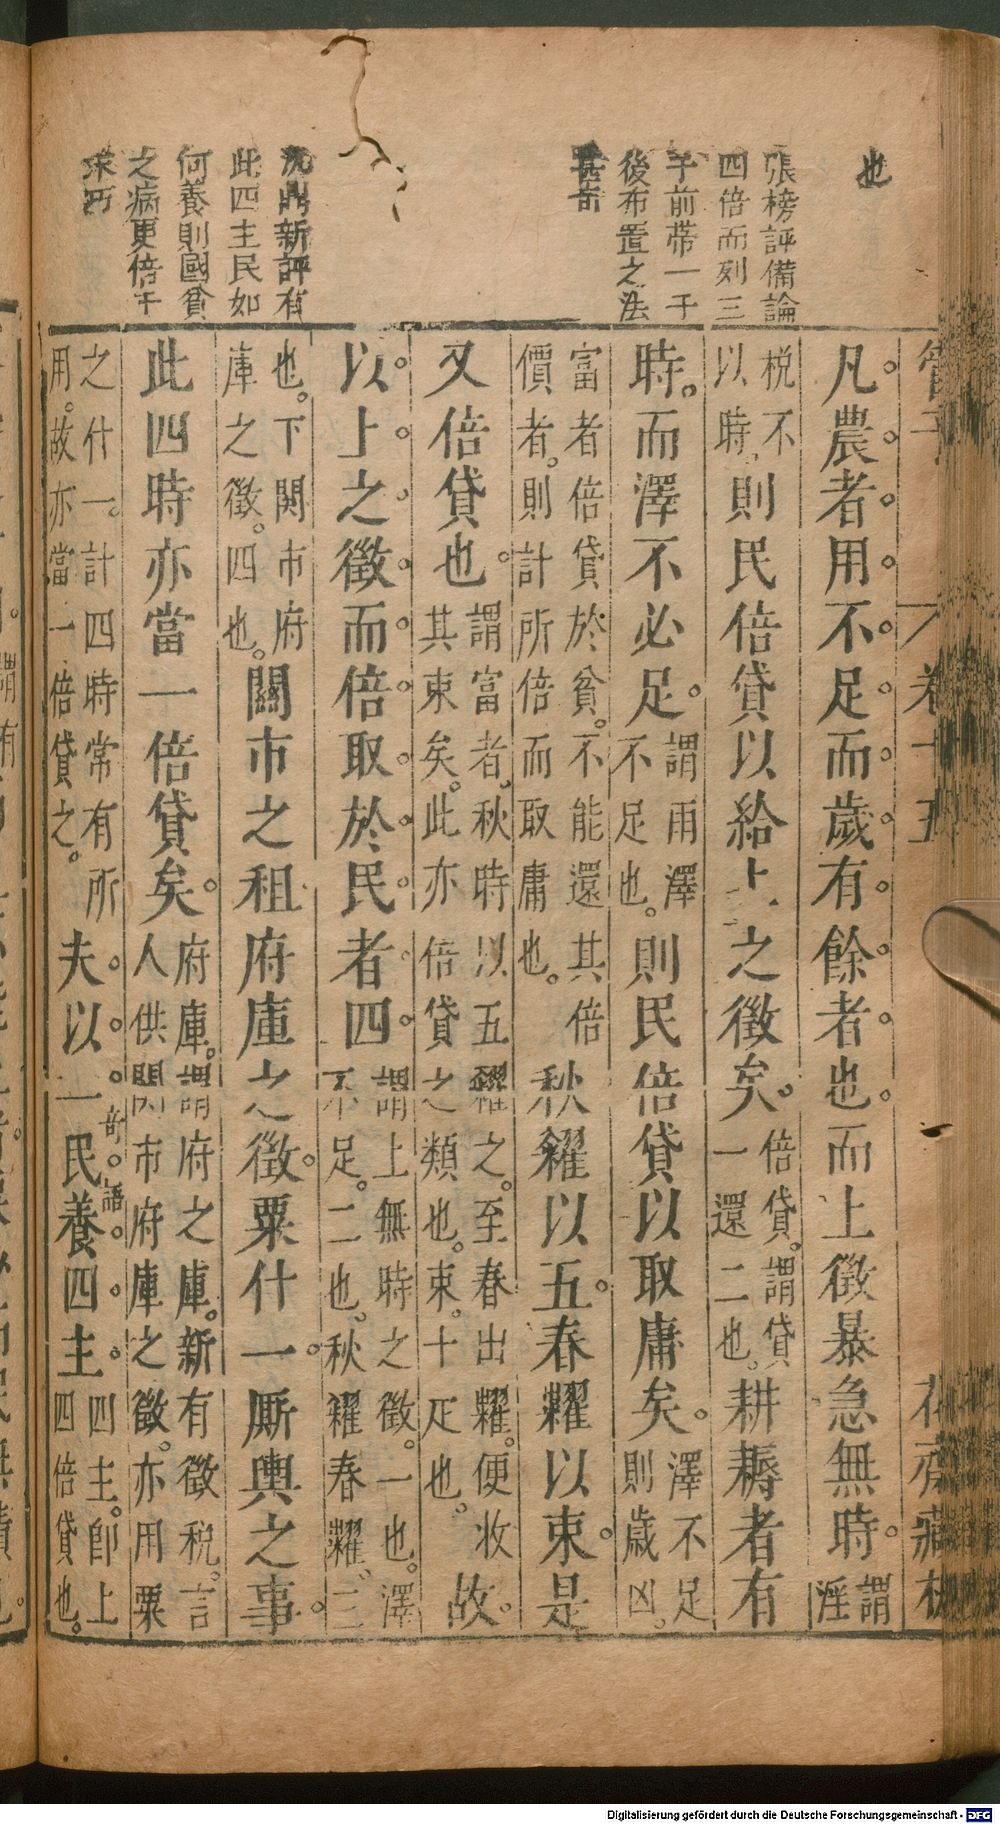 也
張榜評備論
四倍而列三
于前帶一于
後布置之法
甚奇
沈鼎新評有
此四主民如
何養則國貧
之病更倍于
管子 卷十五 花齋藏板
凡。農。者。用。不。足。而。歲。有。餘。者。也。而上徵暴急無時。謂淫
税不以時。則民倍貸以給上之徵矣。倍貸。謂貸一還二也。耕耨者有
時。而澤不必足。謂雨澤不足也。則民倍貸以取庸矣。澤不足則歲凶。
富者倍貸於貧。不能還其倍價者。則計所倍而取庸也。秋糴以五。春糶以束。是
又倍貸也。謂富者。秋時以五糴之。至春出糶。便收其束矣。此亦倍貸之類也。束。十疋也。故。
以。上。之。徵。而。倍。取。於。民。者。四。謂上無時之徵。一也。澤不足。二也。秋糴春糶、三
也。下關市府庫之徵。四也。關市之租府庫之徵。粟什一。厮輿之事。
此四時亦當一倍貸矣。府庫。謂府之庫。新有徵税。言人供關市府庫之徵。亦用粟
之什一。計四時常有所用。故亦當一倍貸之。夫。以。一。民。養。四。主。四主。即上四倍貸也。
奇語
Digitalisierung gefördert durch die Deutsche Forschungsgemeinschaft - DFG